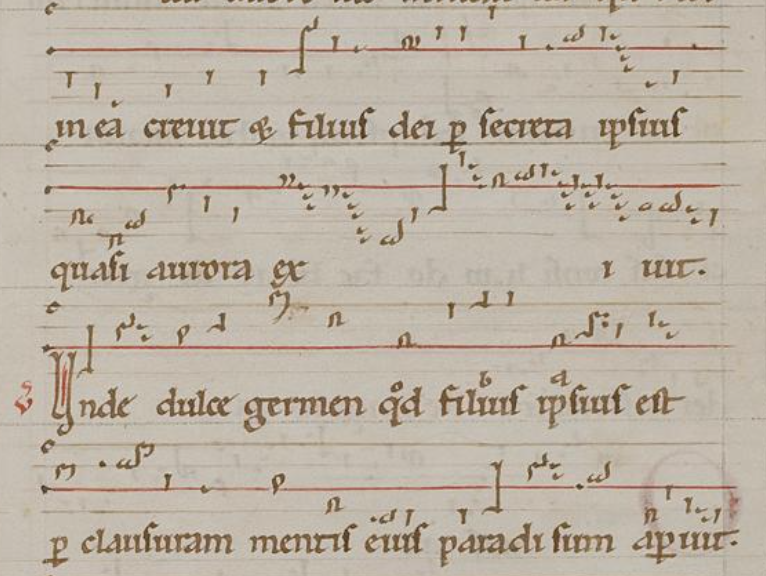 in ea creuit qͣ filius dei ꝑ secreta ipsius
quasi aurora ex i uit.
V Unde dulce germen qͦd filius b ipsius a est
ꝑ clausuram mentis eius paradi sum aꝑuit.